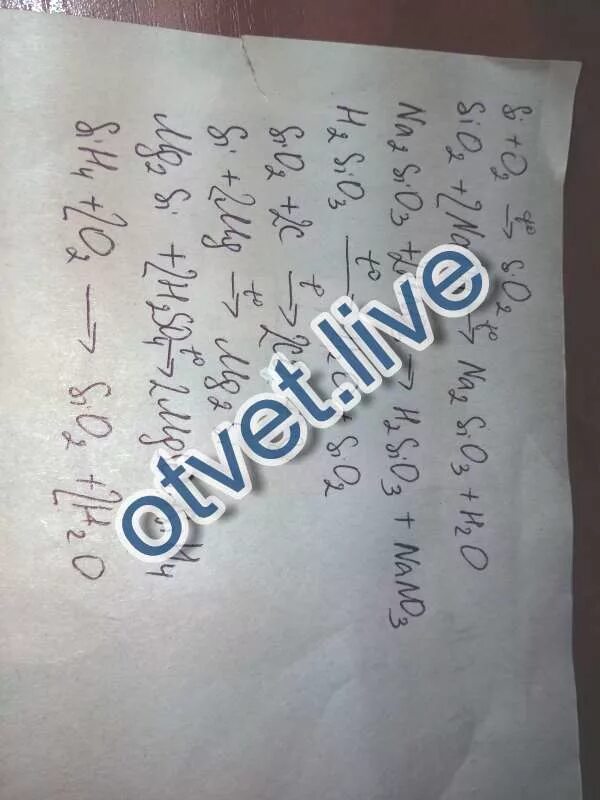 Si + O2 t°→ SiO2
SiO2 + 2Na t°→ Na2SiO3 + H2O
Na2SiO3 + → H2SiO3 + NaNO3
H2SiO3 t° SiO2
SiO2 + 2C t→ 2C
Si + 2Mg t°→ Mg2
Mg2Si + 2H2SO4 t°→ 2Mg H4
SiH4 + 2O2 → SiO2 + 2H2O
otvet.live